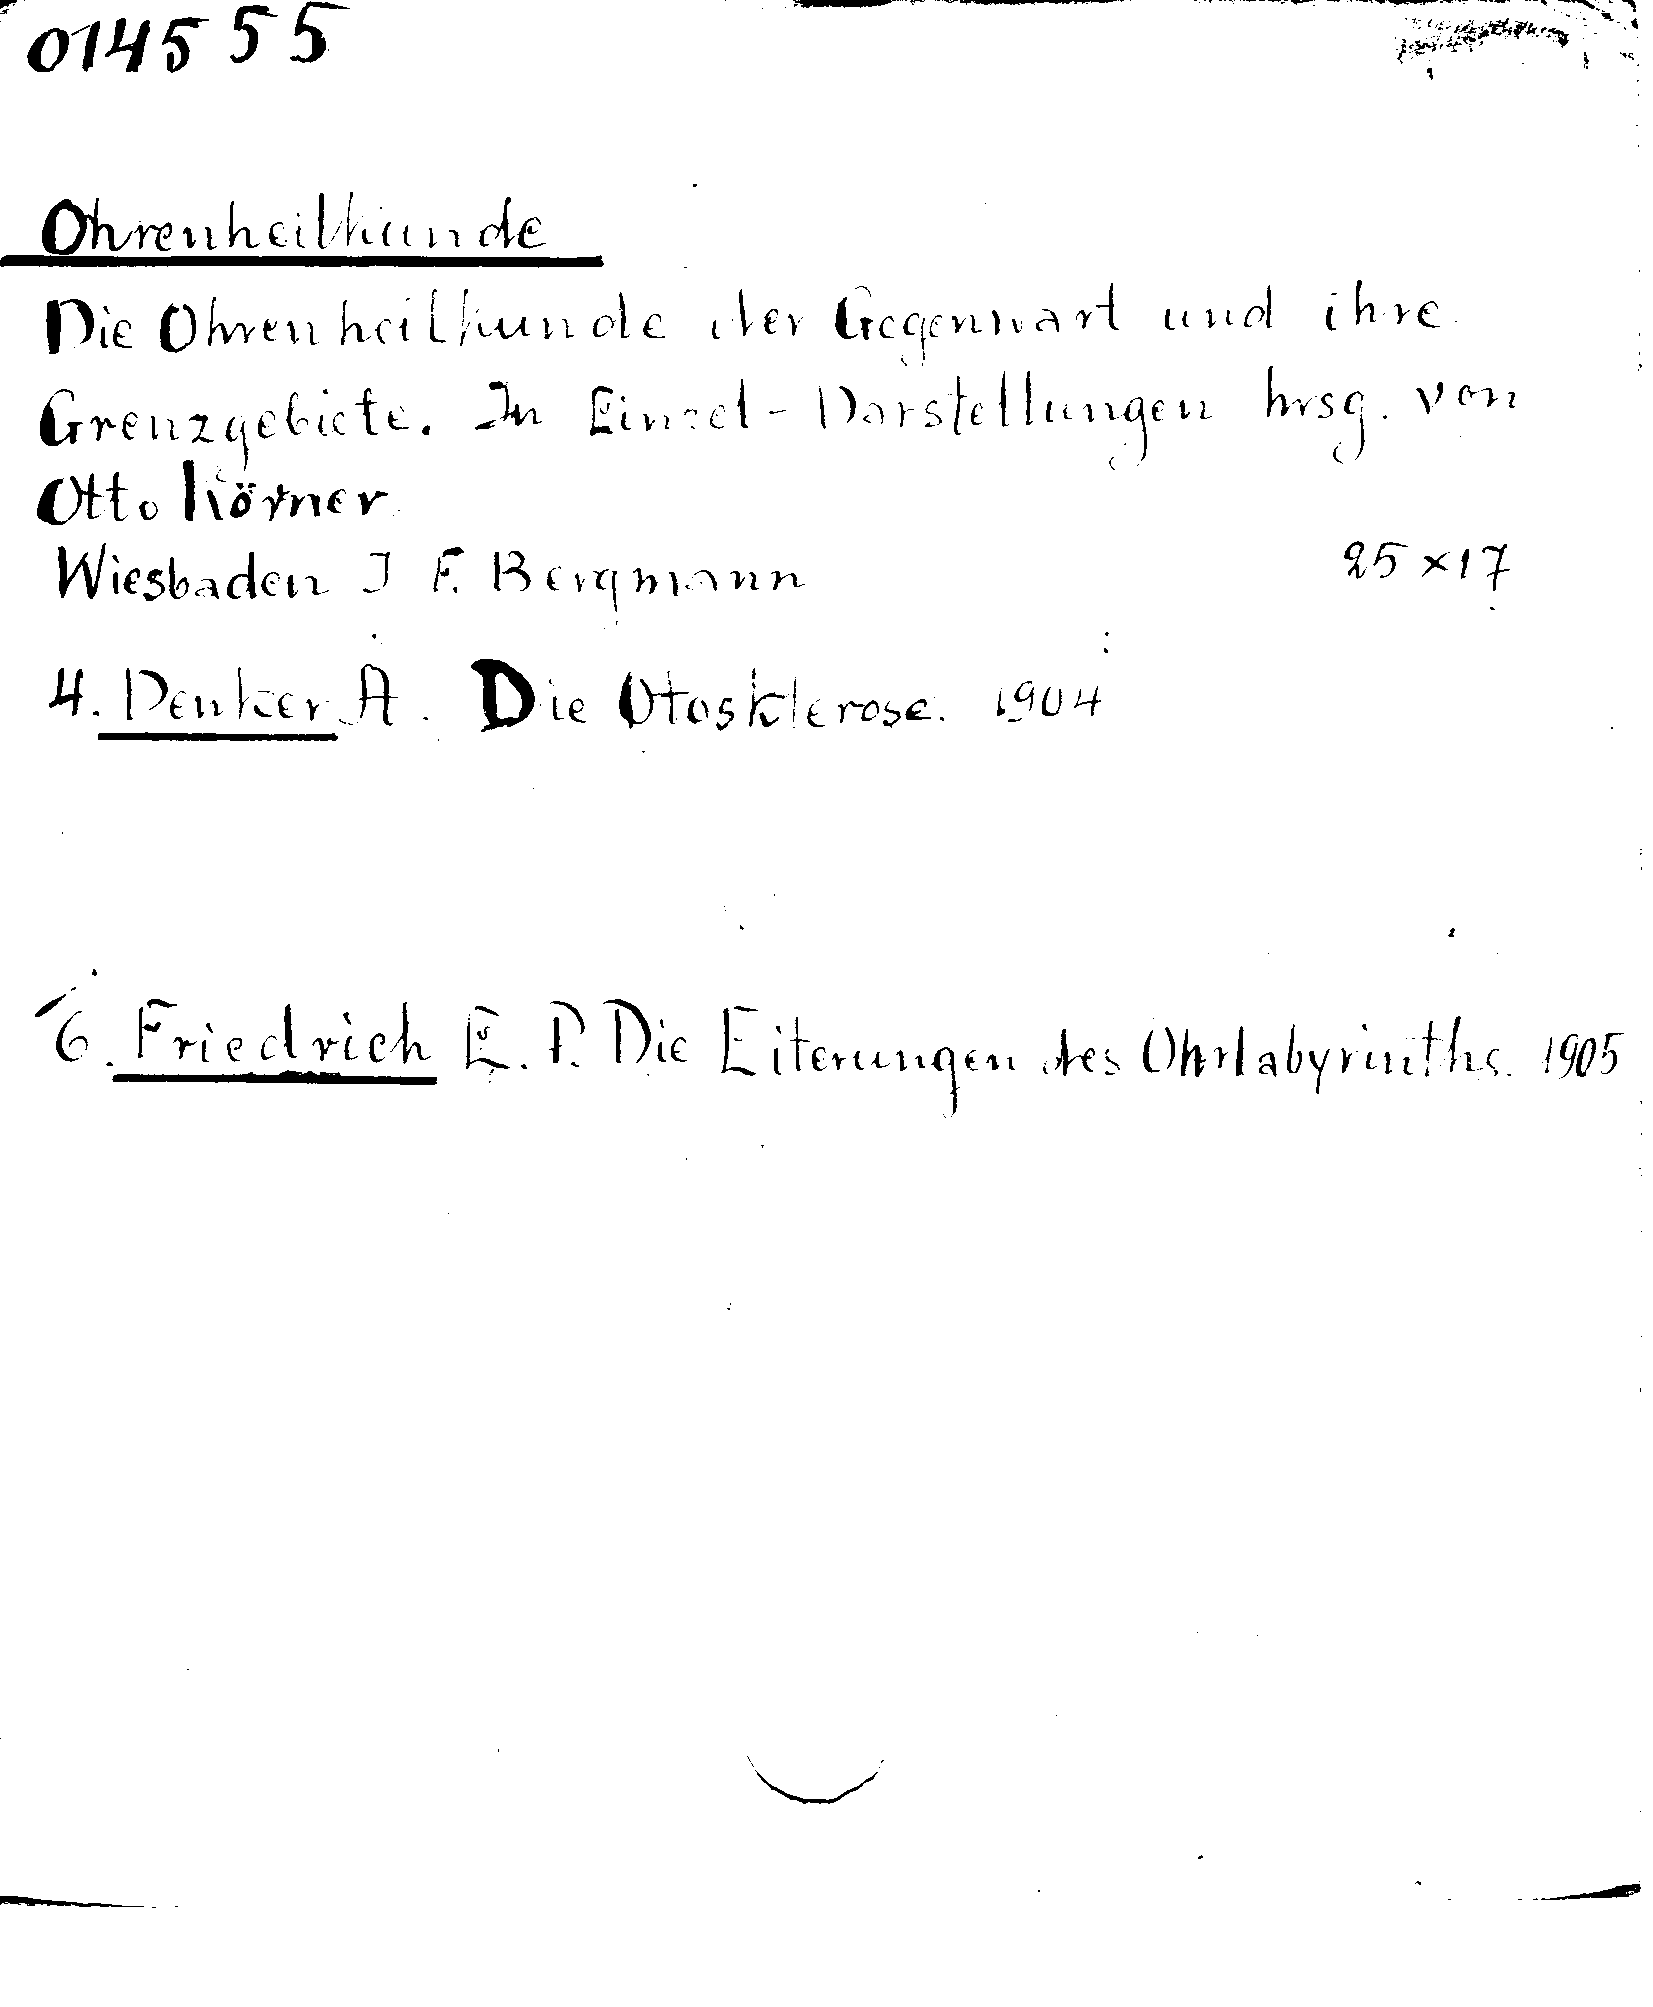 014555
Ohrenheilkunde
Die Ohrenheilkunde der Gegenwart und ihre
Grenzgebiete. In Einzel-Darstellungen hrsg. von
Otto Körner
Wiesbaden J F. Bergmann 25 x 17
4. Denker A. Die Otosklerose. 1904
6. Friedrich E. P. Die Eiterungen des Ohrlabyrinths. 1905